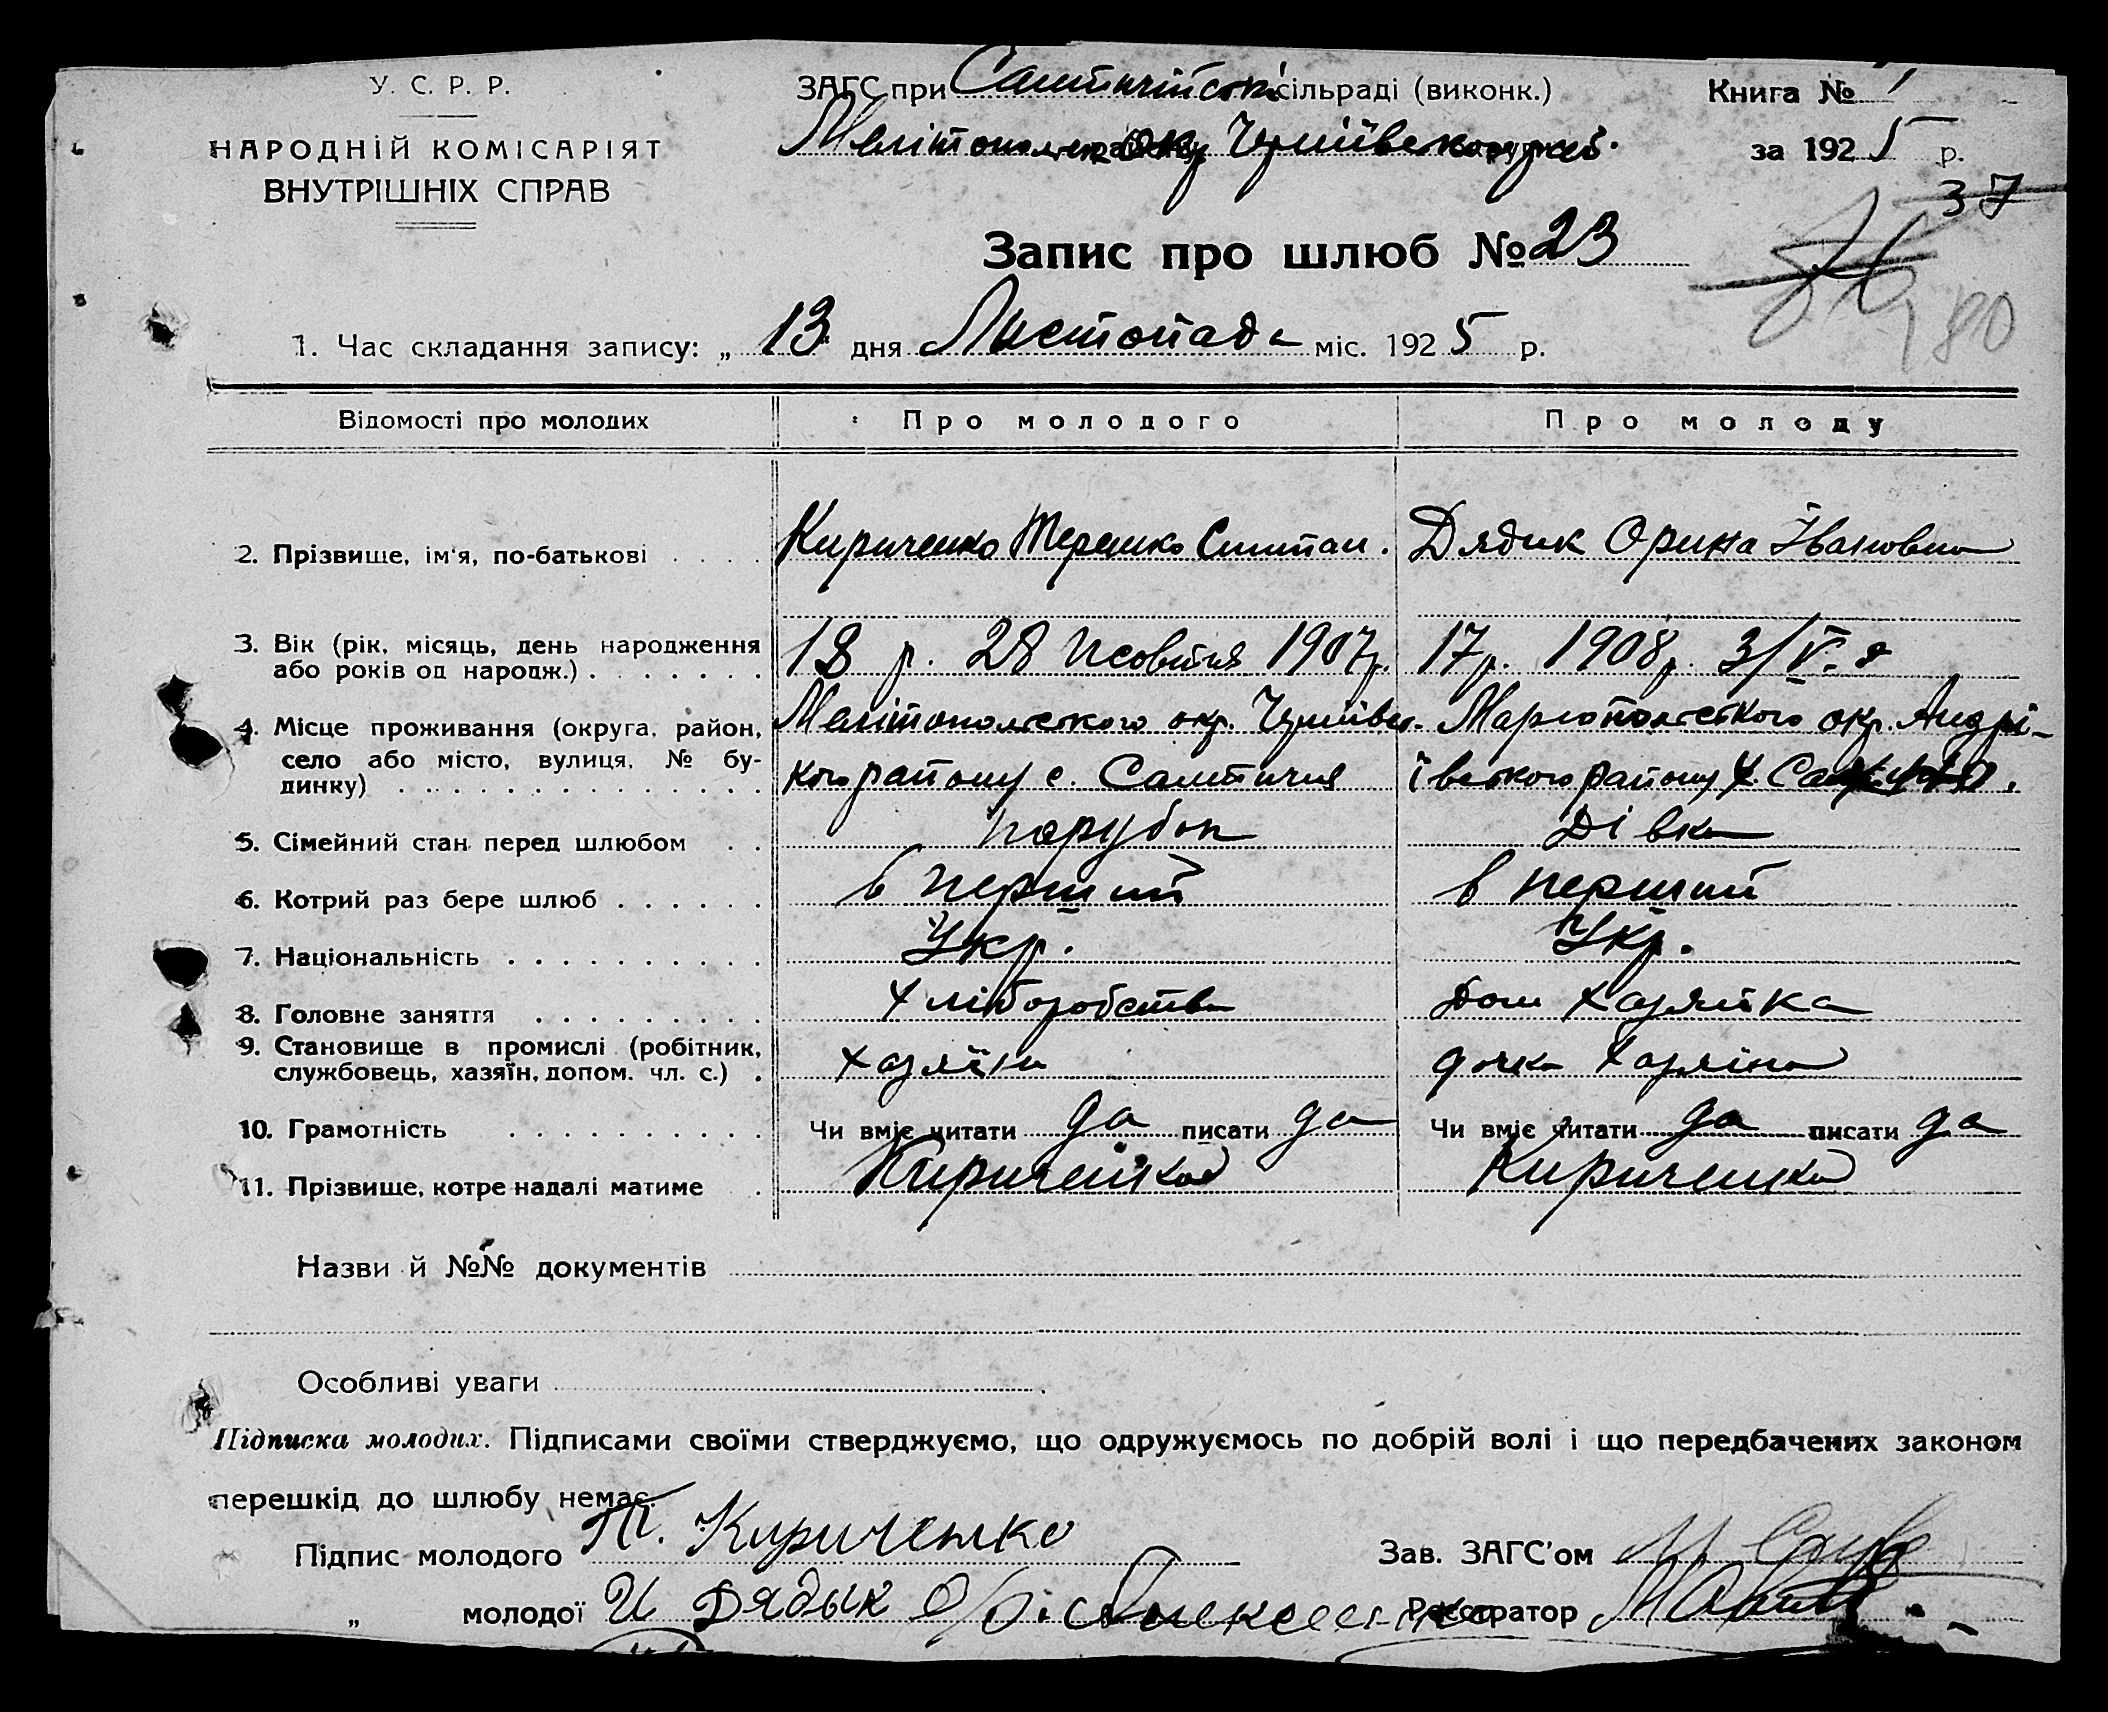 У. С. Р. Р.
НАРОДНІЙ КОМІСАРІЯТ
ВНУТРІШНІХ СПРАВ
ЗАГС при сільраді (виконк.)
Книга № 1
за 1925 р.
37
Запис про шлюб № 23
80
1. Час складання запису: „ 13 дня Листопада міс. 1925 р.
Відомості про молодих Про молодого Про молоду
2. Прізвище, ім'я, по-батькові . . . . Кириченко Терешко Дядик Орина Івановна
3. Вік (рік, місяць, день народження або років од народж.) . . . . . . . 18 р. 28 Жовтня 1907 р. 17 р. 1908 р. 3/V
4. Місце проживання (округа, район, село або місто, вулиця, № будинку) . . . Мелітопольського окр. району с. окр. Андріївського району
5. Сімейний стан перед шлюбом . . парубок Дівка
6. Котрий раз бере шлюб . . . . . . в перший в перший
7. Національність . . . . . . . . . . Укр. Укр.
8. Головне заняття . . . . . . . . . Хліборобство Дом Хазяйка
9. Становище в промислі (робітник, службовець, хазяїн, допом. чл. с.) . хазяїн дочка хазяіна
10. Грамотність . . . . . . . . . . Чи вміє читати да писати да Чи вміє читати да писати да
11. Прізвище, котре надалі матиме . Кириченко Кириченко
Назви й №№ документів
Особливі уваги
Підписка молодих. Підписами своїми стверджуємо, що одружуємось по добрій волі і що передбачених законом
перешкід до шлюбу немає.
Підпис молодого Т. Кириченко
Зав. ЗАГС'ом
„ молодої И Дядык
Реєстратор